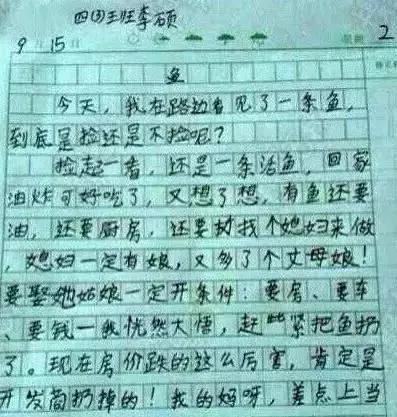 四(3)班李硕
9月15日 星期2
鱼
今天,我在路边看见了一条鱼,
到底是捡还是不捡呢?
捡起一看,还是一条活鱼,回家
油炸可好吃了,又想了想,有鱼还要
油,还要厨房,还要找个媳妇来做
,媳妇一定有娘,又多了个丈母娘!
要娶她姑娘一定开条件:要房、要车
、要钱一我恍然大悟,赶紧把鱼扔
了。现在房价跌的这么厉害,肯定是
开发商扔掉的!我的妈呀,差点上当